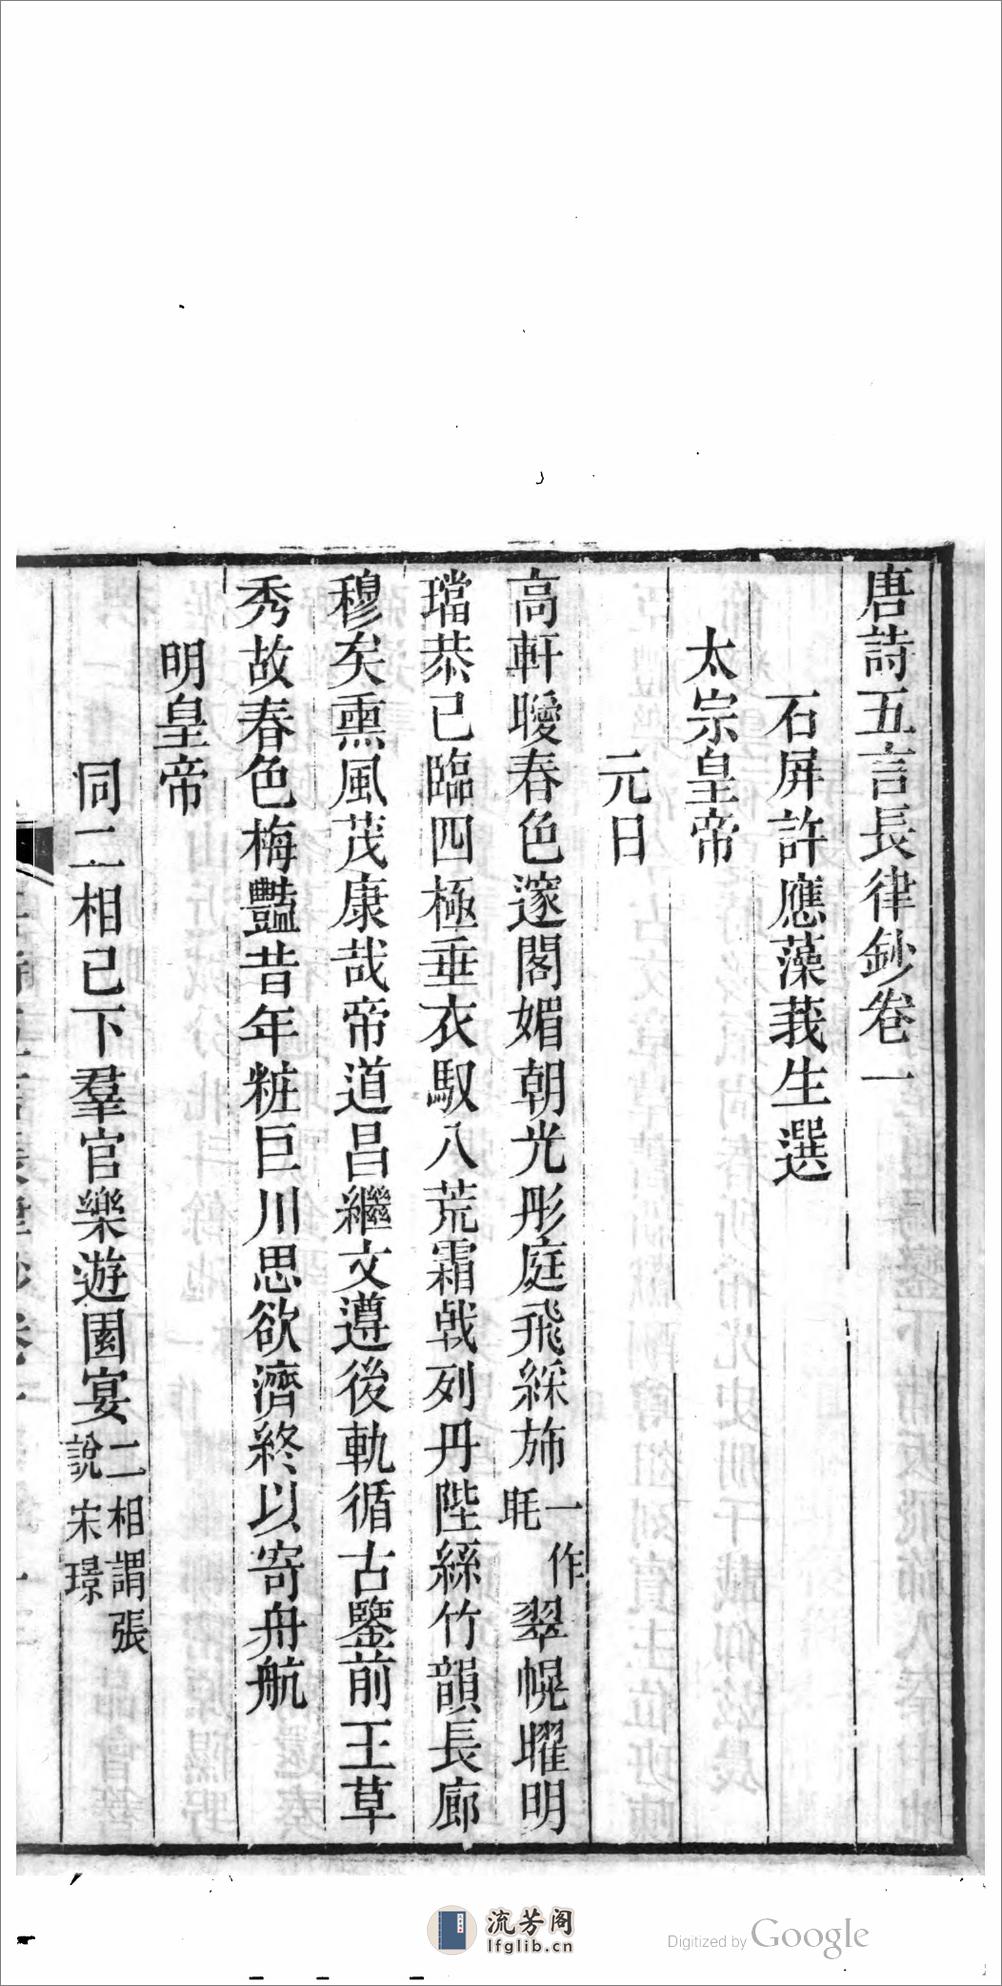 唐詩五言長律鈔卷一
石屏許應藻莪生選
太宗皇帝
元日
高軒曖春色邃閣媚朝光彤庭飛綵斾一作眊翠幌曜明
璫恭己臨四極垂衣馭八荒霜戟列丹陛絲竹韻長廊
穆矣熏風茂康哉帝道昌繼文遵後軌循古鑒前王草
秀故春色梅豔昔年粧巨川思欲濟終以寄舟航
明皇帝
同二相已下羣官樂遊園宴二相謂張說宋璟
流芳阁
lfglib.cn
Digitized by Google